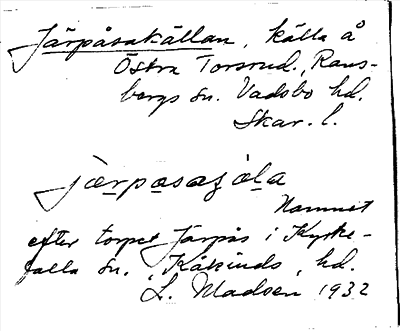 Järpåsakällan, källa å
Östra Torsrud, Rans-
bergs sn. Vadsbo hd.
Skar. l.
järpasaҫäla
Namnet
efter torpet Järpås i Kyrke-
falla sn., Kåkinds, hd.
L. Madsen 1932